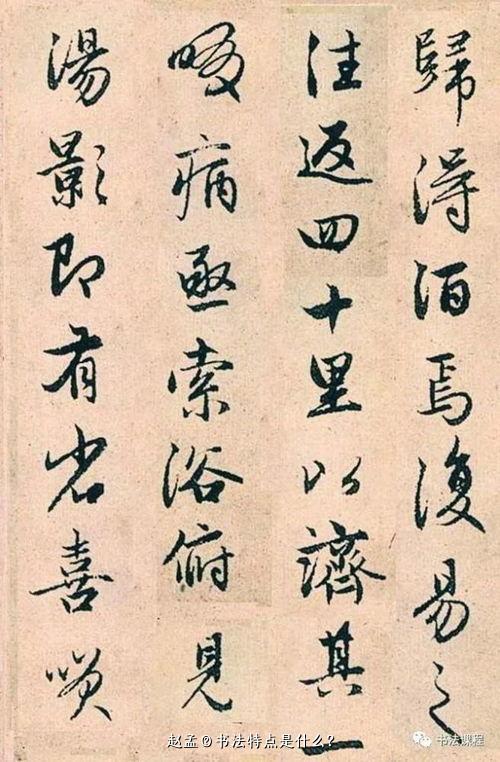 歸淂酒焉復易之
往返四十里以濟其一
啜病亟索浴俯見
湯影即有省喜咲
赵孟 书法特点是什么?
书法课程